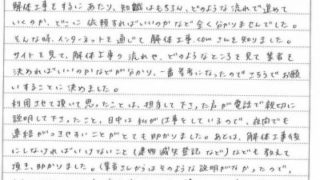 解体工事をするにあたり、知識はもちろん、どのような流れで進めて
いくのか、どこに依頼すればいいのかなど全く分かりませんでした。
そんな時、インターネットを通じて解体工事.comさんを知りました。
サイトを見て、解体工事の流れや、どのようなところを見て業者を
決めればいいのかなどがわかり、一番参考になったのでこちらでお願
いすることに決めました。
利用させて頂いて思ったことは、担当して下さった方が電話で親切に
説明して下さったこと、日中は私が仕事をしているので、夜間でも
連絡がつきやすいことがとても助かりました。あとは、解体工事後
にしなければいけないこと(建物滅失登記など)なども教えて
頂き、助かりました。(業者さんからはそのような説明がなかったので、